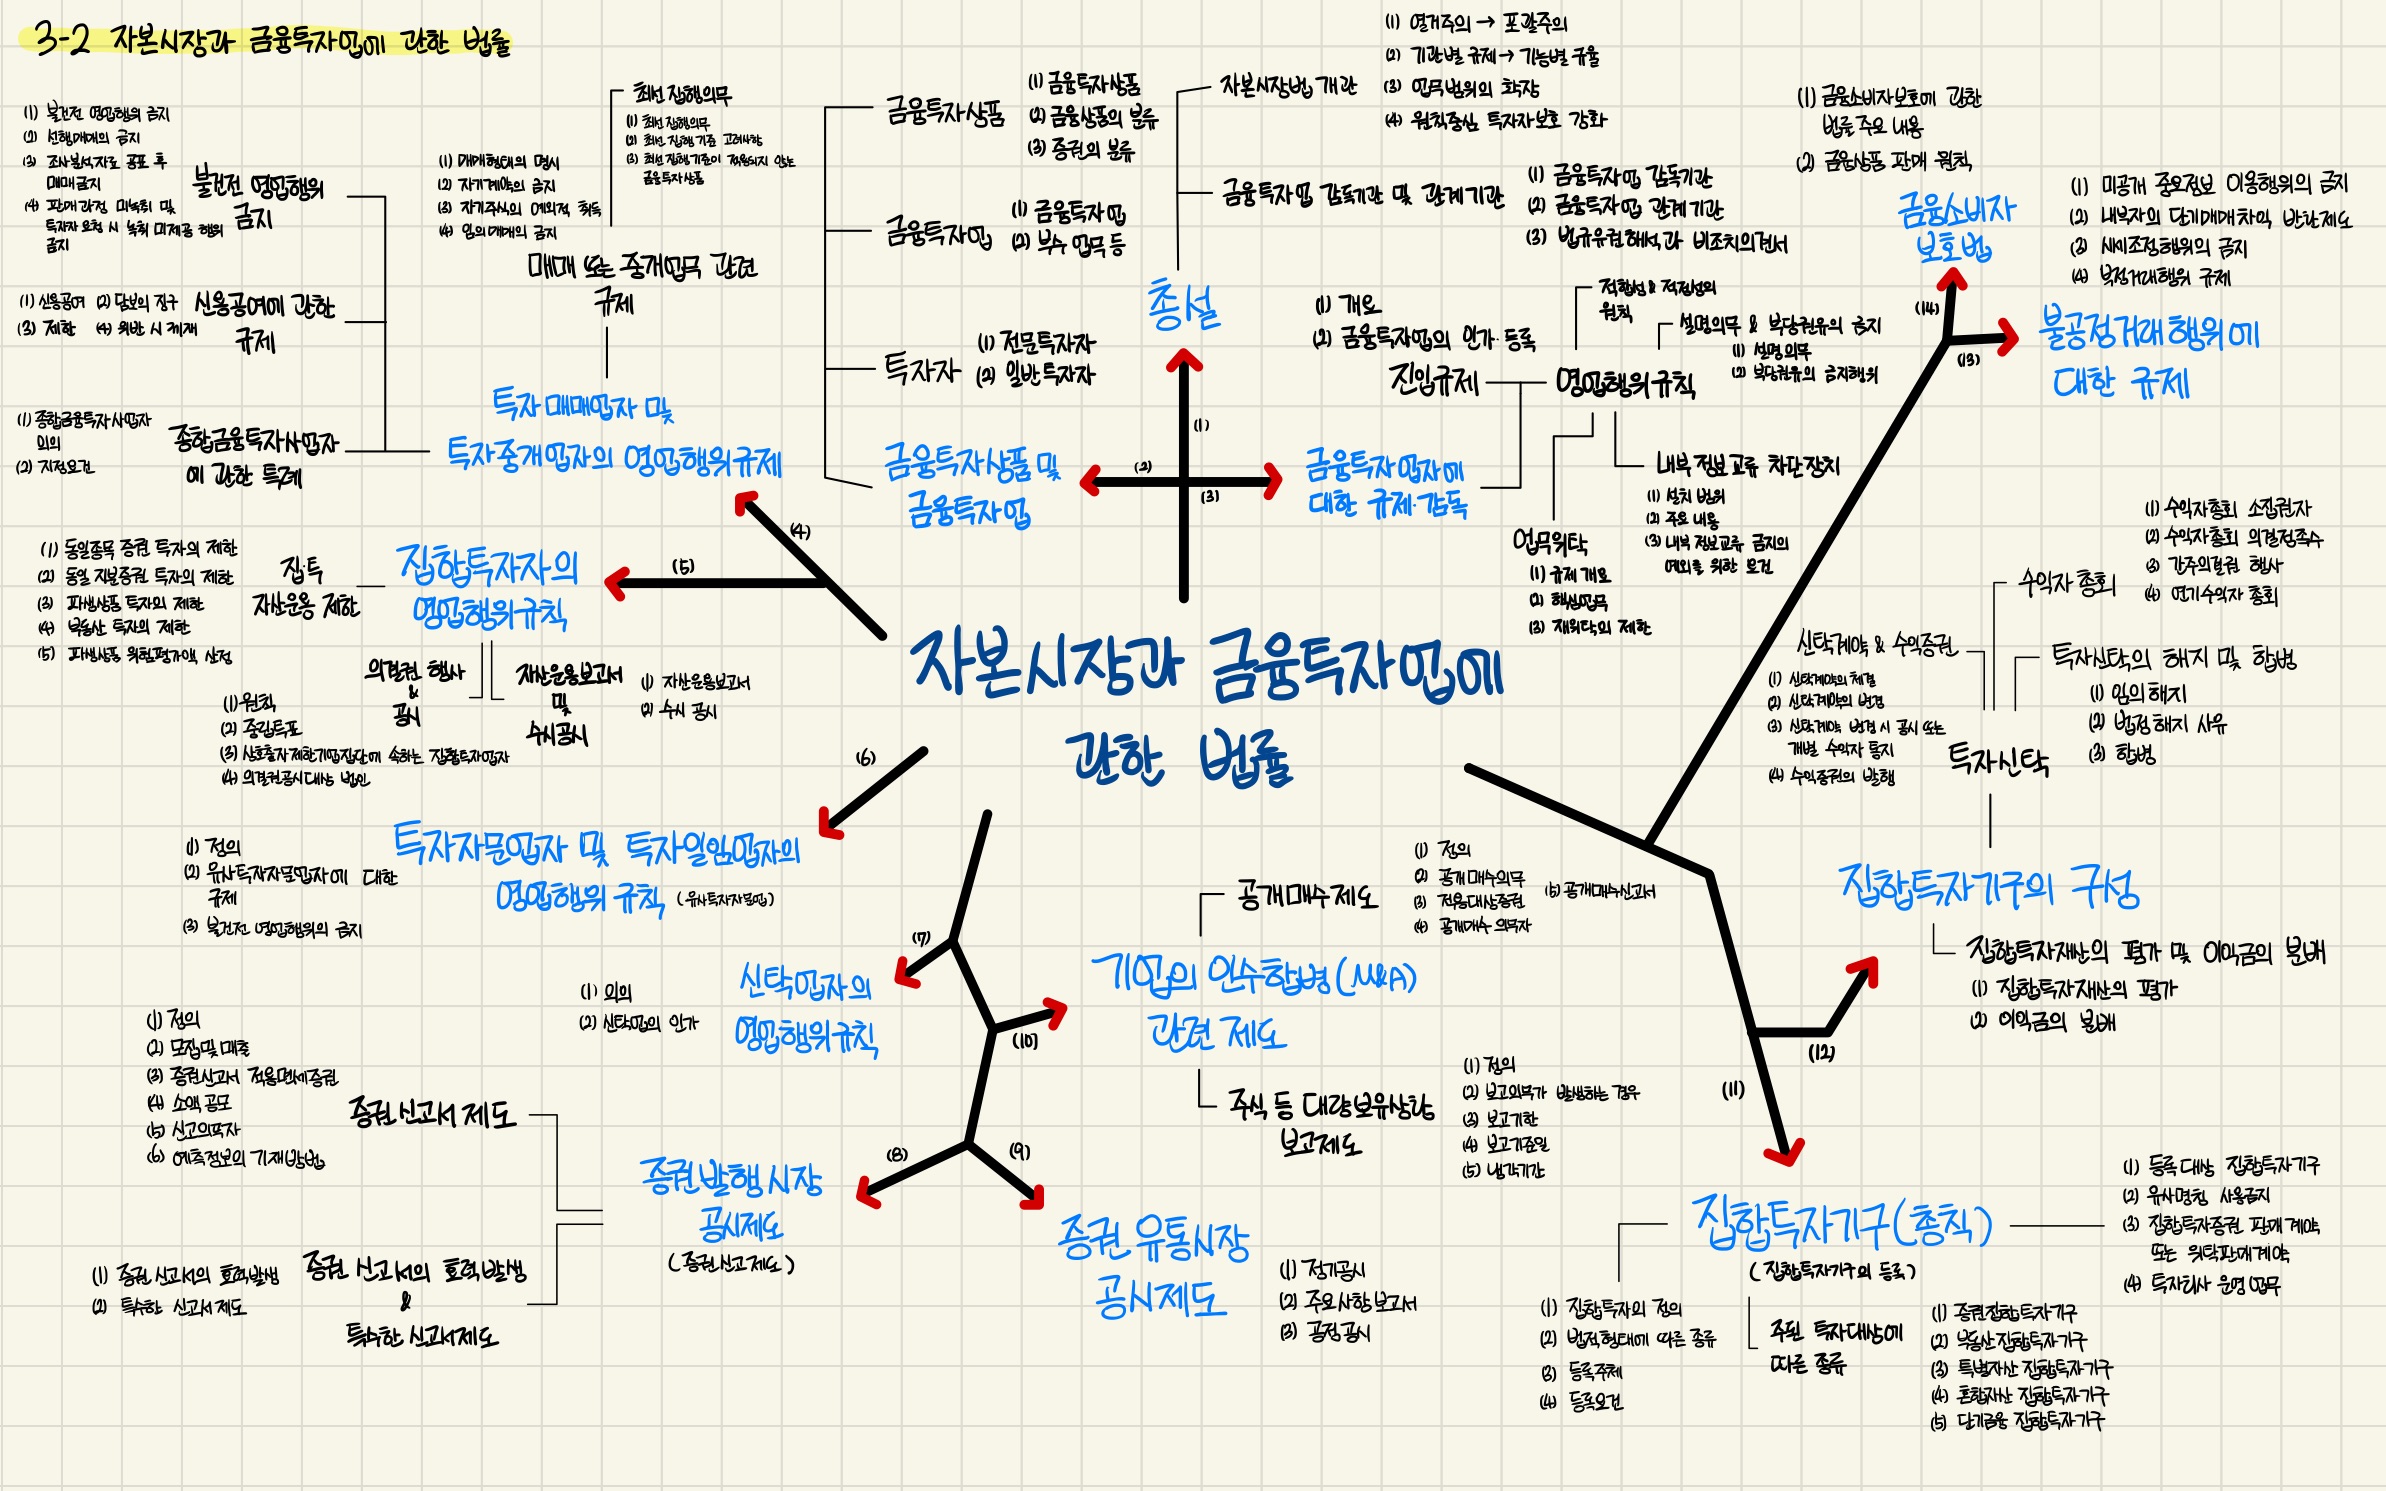 3-2 자본시장과 금융투자업에 관한 법률
자본시장과 금융투자업에
관한 법률
(1)
총설
자본시장법 개관
(1) 열거주의 → 포괄주의
(2) 기관별 규제 → 기능별 규율
(3) 업무범위의 확장
(4) 원칙중심 투자자보호 강화
금융투자업 감독기관 및 관계기관
(1) 금융투자업 감독기관
(2) 금융투자업 관계기관
(3) 법규유권해석과 비조치의견서
(2)
금융투자상품 및
금융투자업
금융투자상품
(1) 금융투자상품
(2) 금융상품의 분류
(3) 증권의 분류
금융투자업
(1) 금융투자업
(2) 부수 업무 등
투자자
(1) 전문투자자
(2) 일반투자자
(3)
금융투자업자에
대한 규제·감독
진입규제
(1) 개요
(2) 금융투자업의 인가·등록
영업행위규칙
적합성 & 적정성의
원칙
설명의무 & 부당권유의 금지
(1) 설명의무
(2) 부당권유의 금지행위
내부 정보교류 차단장치
(1) 설치 범위
(2) 주요 내용
(3) 내부 정보교류 금지의
예외를 위한 요건
업무위탁
(1) 규제 개요
(2) 핵심업무
(3) 재위탁의 제한
(4)
투자매매업자 및
투자중개업자의 영업행위규제
매매 또는 중개업무 관련
규제
(1) 매매형태의 명시
(2) 자기계약의 금지
(3) 자기주식의 예외적 취득
(4) 임의매매의 금지
최선집행의무
(1) 최선집행의무
(2) 최선집행기준 고려사항
(3) 최선집행기준이 적용되지 않는
금융투자상품
불건전 영업행위
금지
(1) 불건전 영업행위의 금지
(2) 선행매매의 금지
(3) 조사분석자료 공표 후
매매금지
(4) 판매과정 미녹취 및
투자자 요청 시 녹취 미제공 행위
금지
신용공여에 관한
규제
(1) 신용공여 (2) 담보의 징구
(3) 제한 (4) 위반 시 제재
종합금융투자사업자
에 관한 특례
(1) 종합금융투자사업자
의의
(2) 지정요건
(5)
집합투자자의
영업행위규칙
집·투
자산운용 제한
(1) 동일종목 증권 투자의 제한
(2) 동일 지분증권 투자의 제한
(3) 파생상품 투자의 제한
(4) 부동산 투자의 제한
(5) 파생상품 위험평가액 산정
의결권 행사
&
공시
(1) 원칙
(2) 중립투표
(3) 상호출자제한기업집단에 속하는 집합투자업자
(4) 의결권공시대상 법인
자산운용보고서
및
수시공시
(1) 자산운용보고서
(2) 수시 공시
(6)
투자자문업자 및 투자일임업자의
영업행위 규칙 (유사투자자문업)
(1) 정의
(2) 유사투자자문업자에 대한
규제
(3) 불건전 영업행위의 금지
(7)
신탁업자의
영업행위규칙
(1) 의의
(2) 신탁업의 인가
(8)
증권발행시장
공시제도
(증권신고제도)
증권신고서 제도
(1) 정의
(2) 모집 및 매출
(3) 증권신고서 적용면제증권
(4) 소액 공모
(5) 신고의무자
(6) 예측정보의 기재방법
증권 신고서의 효력발생
&
특수한 신고서제도
(1) 증권 신고서의 효력발생
(2) 특수한 신고서 제도
(9)
증권 유통시장
공시제도
(1) 정기공시
(2) 주요사항보고서
(3) 공정공시
(10)
기업의 인수합병(M&A)
관련 제도
공개매수제도
(1) 정의
(2) 공개매수의무
(3) 적용대상증권
(4) 공개매수 의무자
(5) 공개매수신고서
주식 등 대량보유상황
보고제도
(1) 정의
(2) 보고의무가 발생하는 경우
(3) 보고기한
(4) 보고기준일
(5) 냉각기간
(11)
집합투자기구(총칙)
(집합투자기구의 등록)
(1) 집합투자의 정의
(2) 법적형태에 따른 종류
(3) 등록주체
(4) 등록요건
주된 투자대상에
따른 종류
(1) 증권집합투자기구
(2) 부동산집합투자기구
(3) 특별자산 집합투자기구
(4) 혼합자산 집합투자기구
(5) 단기금융 집합투자기구
(1) 등록대상 집합투자기구
(2) 유사명칭 사용금지
(3) 집합투자증권 판매계약
또는 위탁판매계약
(4) 투자회사 운영업무
(12)
집합투자기구의 구성
투자신탁
신탁계약 & 수익증권
(1) 신탁계약의 체결
(2) 신탁계약의 변경
(3) 신탁계약 변경 시 공시 또는
개별 수익자 통지
(4) 수익증권의 발행
수익자 총회
(1) 수익자총회 소집권자
(2) 수익자총회 의결정족수
(3) 간주의결권 행사
(4) 연기수익자 총회
투자신탁의 해지 및 합병
(1) 임의해지
(2) 법정해지 사유
(3) 합병
집합투자재산의 평가 및 이익금의 분배
(1) 집합투자재산의 평가
(2) 이익금의 분배
(13)
불공정거래행위에
대한 규제
(1) 미공개 중요정보 이용행위의 금지
(2) 내부자의 단기매매차익 반환제도
(3) 시세조정행위의 금지
(4) 부정거래행위 규제
(14)
금융소비자
보호법
(1) 금융소비자보호에 관한
법률 주요 내용
(2) 금융상품 판매 원칙